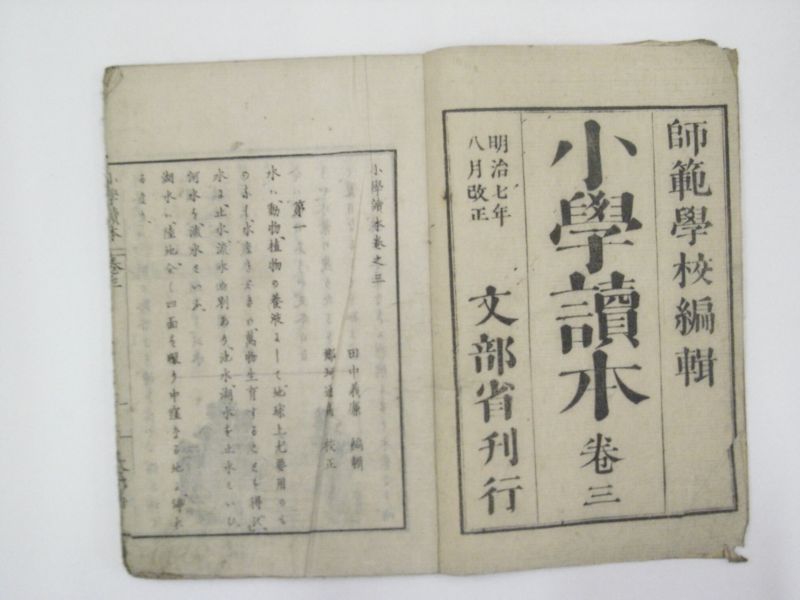 師範學校編輯
小學讀本 卷三
明治七年
八月改正
文部省刊行
小學讀本卷之三
田中義廉 編輯
那珂通高 校正
第一
水ハ、動物植物の養液よして、地球上尤要用のも
のなり、水なきときハ、萬物生育することを得ず、
水ふ、止水、流水の別あり、池水、湖水を止水といひ、
河水を流水といふ、
湖水ハ、陸地全く四面を環り、中窪なる地ふ
小學讀本 卷三